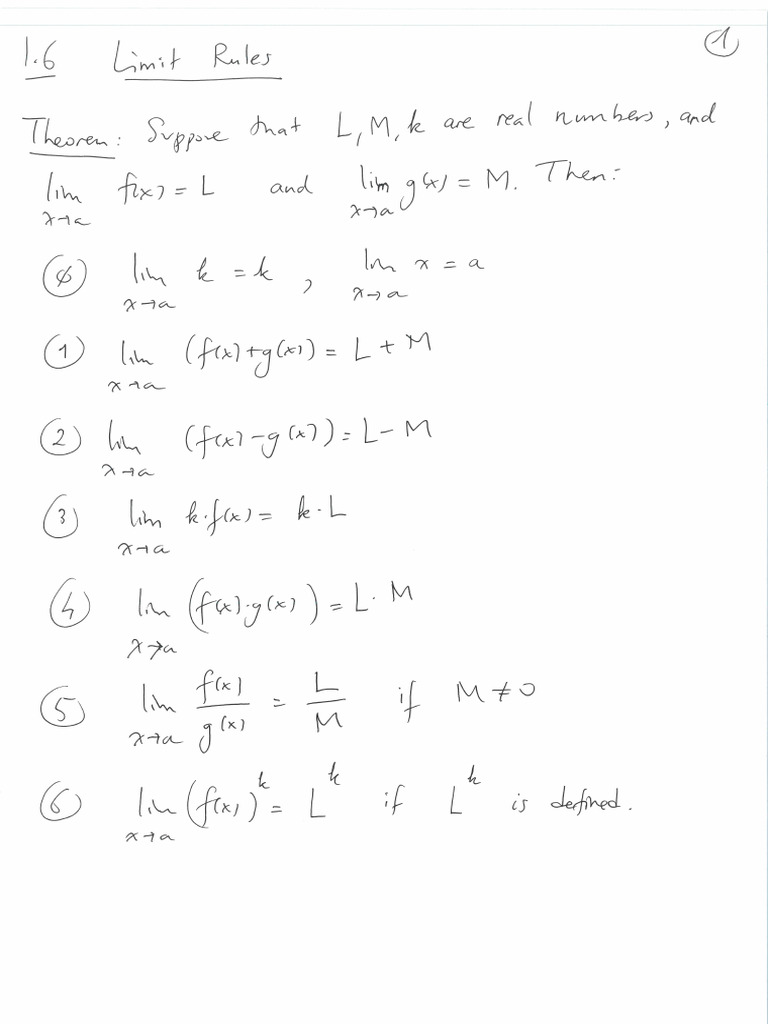 1.6 Limit Rules ①
Theorem: Suppose that L, M, k are real numbers, and
lim_{x→a} f(x) = L and lim_{x→a} g(x) = M. Then:
⓪ lim_{x→a} k = k , lim_{x→a} x = a
① lim_{x→a} (f(x)+g(x)) = L + M
② lim_{x→a} (f(x)-g(x)) = L - M
③ lim_{x→a} k·f(x) = k·L
④ lim_{x→a} (f(x)·g(x)) = L·M
⑤ lim_{x→a} f(x)/g(x) = L/M if M ≠ 0
⑥ lim_{x→a} (f(x))^k = L^k if L^k is defined.